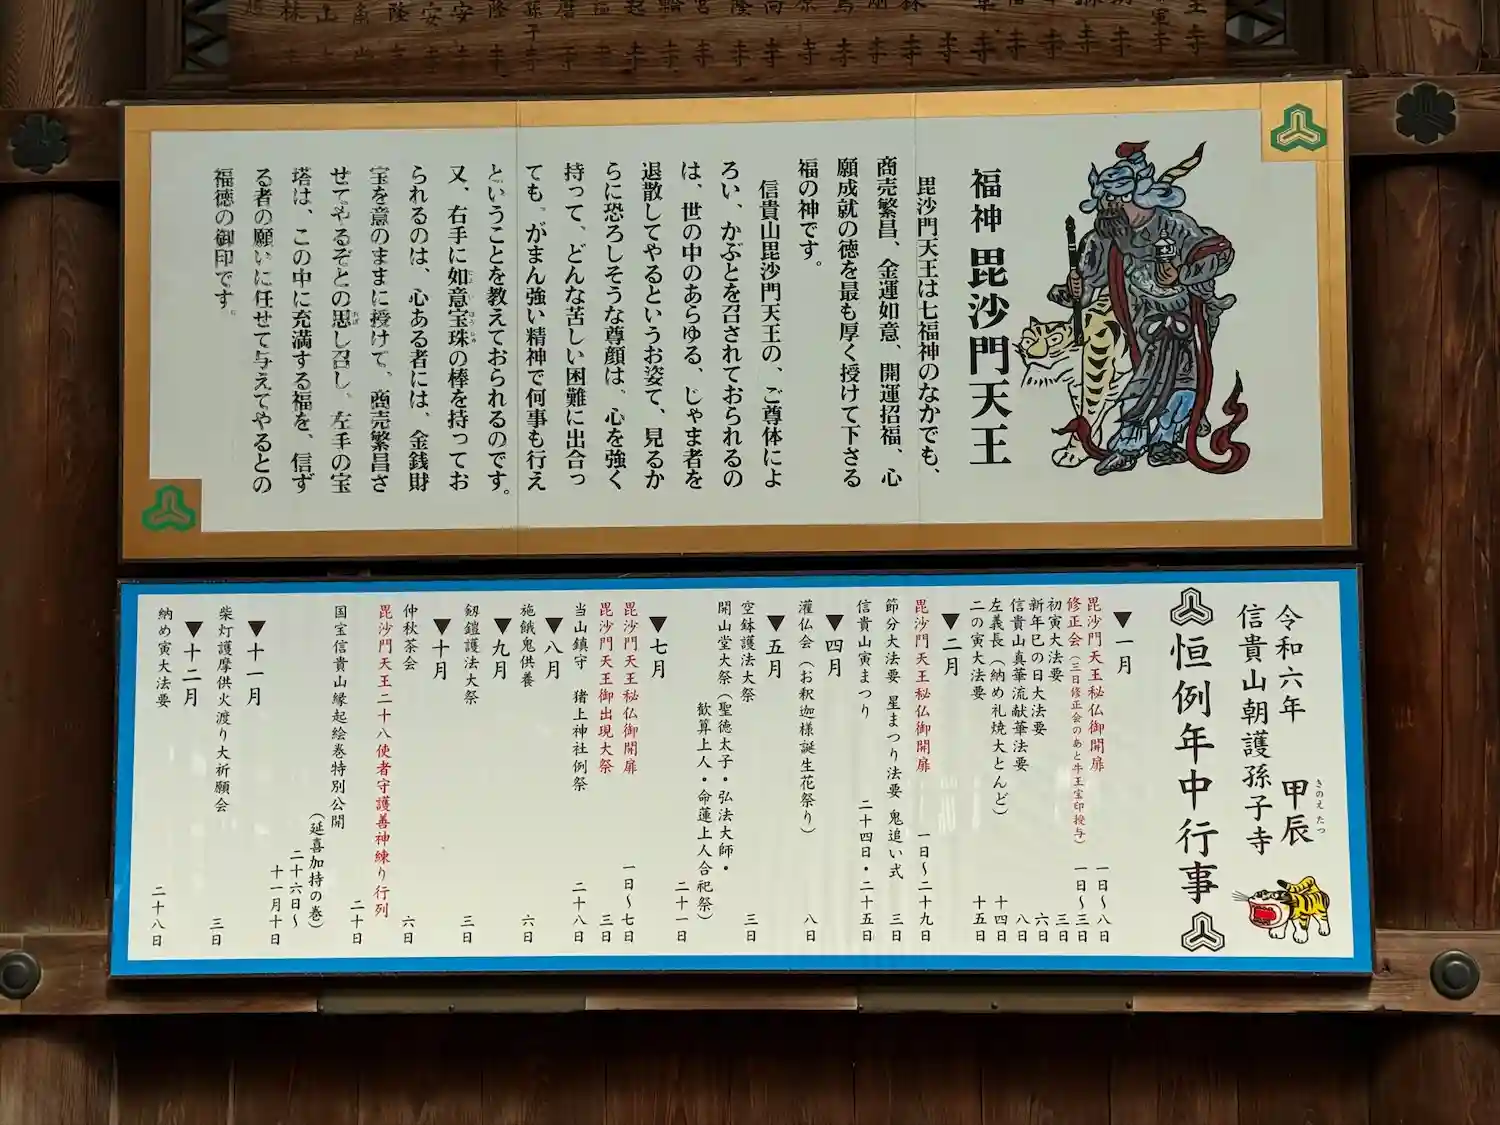 福神 毘沙門天王
毘沙門天王は七福神のなかでも、
商売繁昌、金運如意、開運招福、心
願成就の徳を最も厚く授けて下さる
福の神です。
信貴山毘沙門天王の、ご尊体によ
ろい、かぶとを召されておられるの
は、世の中のあらゆる、じゃま者を
退散してやるというお姿て、見るか
らに恐ろしそうな尊顔は、心を強く
持って、どんな苦しい困難に出合っ
ても、がまん強い精神で何事も行え
ということを教えておられるのです。
又、右手に如意宝珠の棒を持ってお
られるのは、心ある者には、金銭財
宝を意のままに授けて、商売繁昌さ
せてやるぞとの思し召し、左手の宝
塔は、この中に充満する福を、信ず
る者の願いに任せて与えてやるとの
福徳の御印です。
令和六年 甲辰
きのえ たつ
信貴山朝護孫子寺
恒例年中行事
▼一月
毘沙門天王秘仏御開扉 一日～八日
修正会（三日修正会のあと牛王宝印授与） 一日～三日
初寅大法要 三日
新年巳の日大法要 六日
信貴山真華流献華法要 八日
左義長（納め礼焼大とんど） 十四日
二の寅大法要 十五日
▼二月
毘沙門天王秘仏御開扉 一日～二十九日
節分大法要 星まつり法要 鬼追い式 三日
信貴山寅まつり 二十四日・二十五日
▼四月
灌仏会（お釈迦様誕生花祭り） 八日
▼五月
空鉢護法大祭 三日
開山堂大祭（聖徳太子・弘法大師・
歓算上人・命蓮上人合祀祭） 二十一日
▼七月
毘沙門天王秘仏御開扉 一日～七日
毘沙門天王御出現大祭 三日
当山鎮守 猪上神社例祭 二十八日
▼八月
施餓鬼供養 六日
▼九月
剱鎧護法大祭 三日
▼十月
仲秋茶会 六日
毘沙門天王二十八使者守護善神練り行列 二十日
国宝信貴山縁起絵巻特別公開
（延喜加持の巻） 二十六日～
十一月十日
▼十一月
柴灯護摩供火渡り大祈願会 三日
▼十二月
納め寅大法要 二十八日